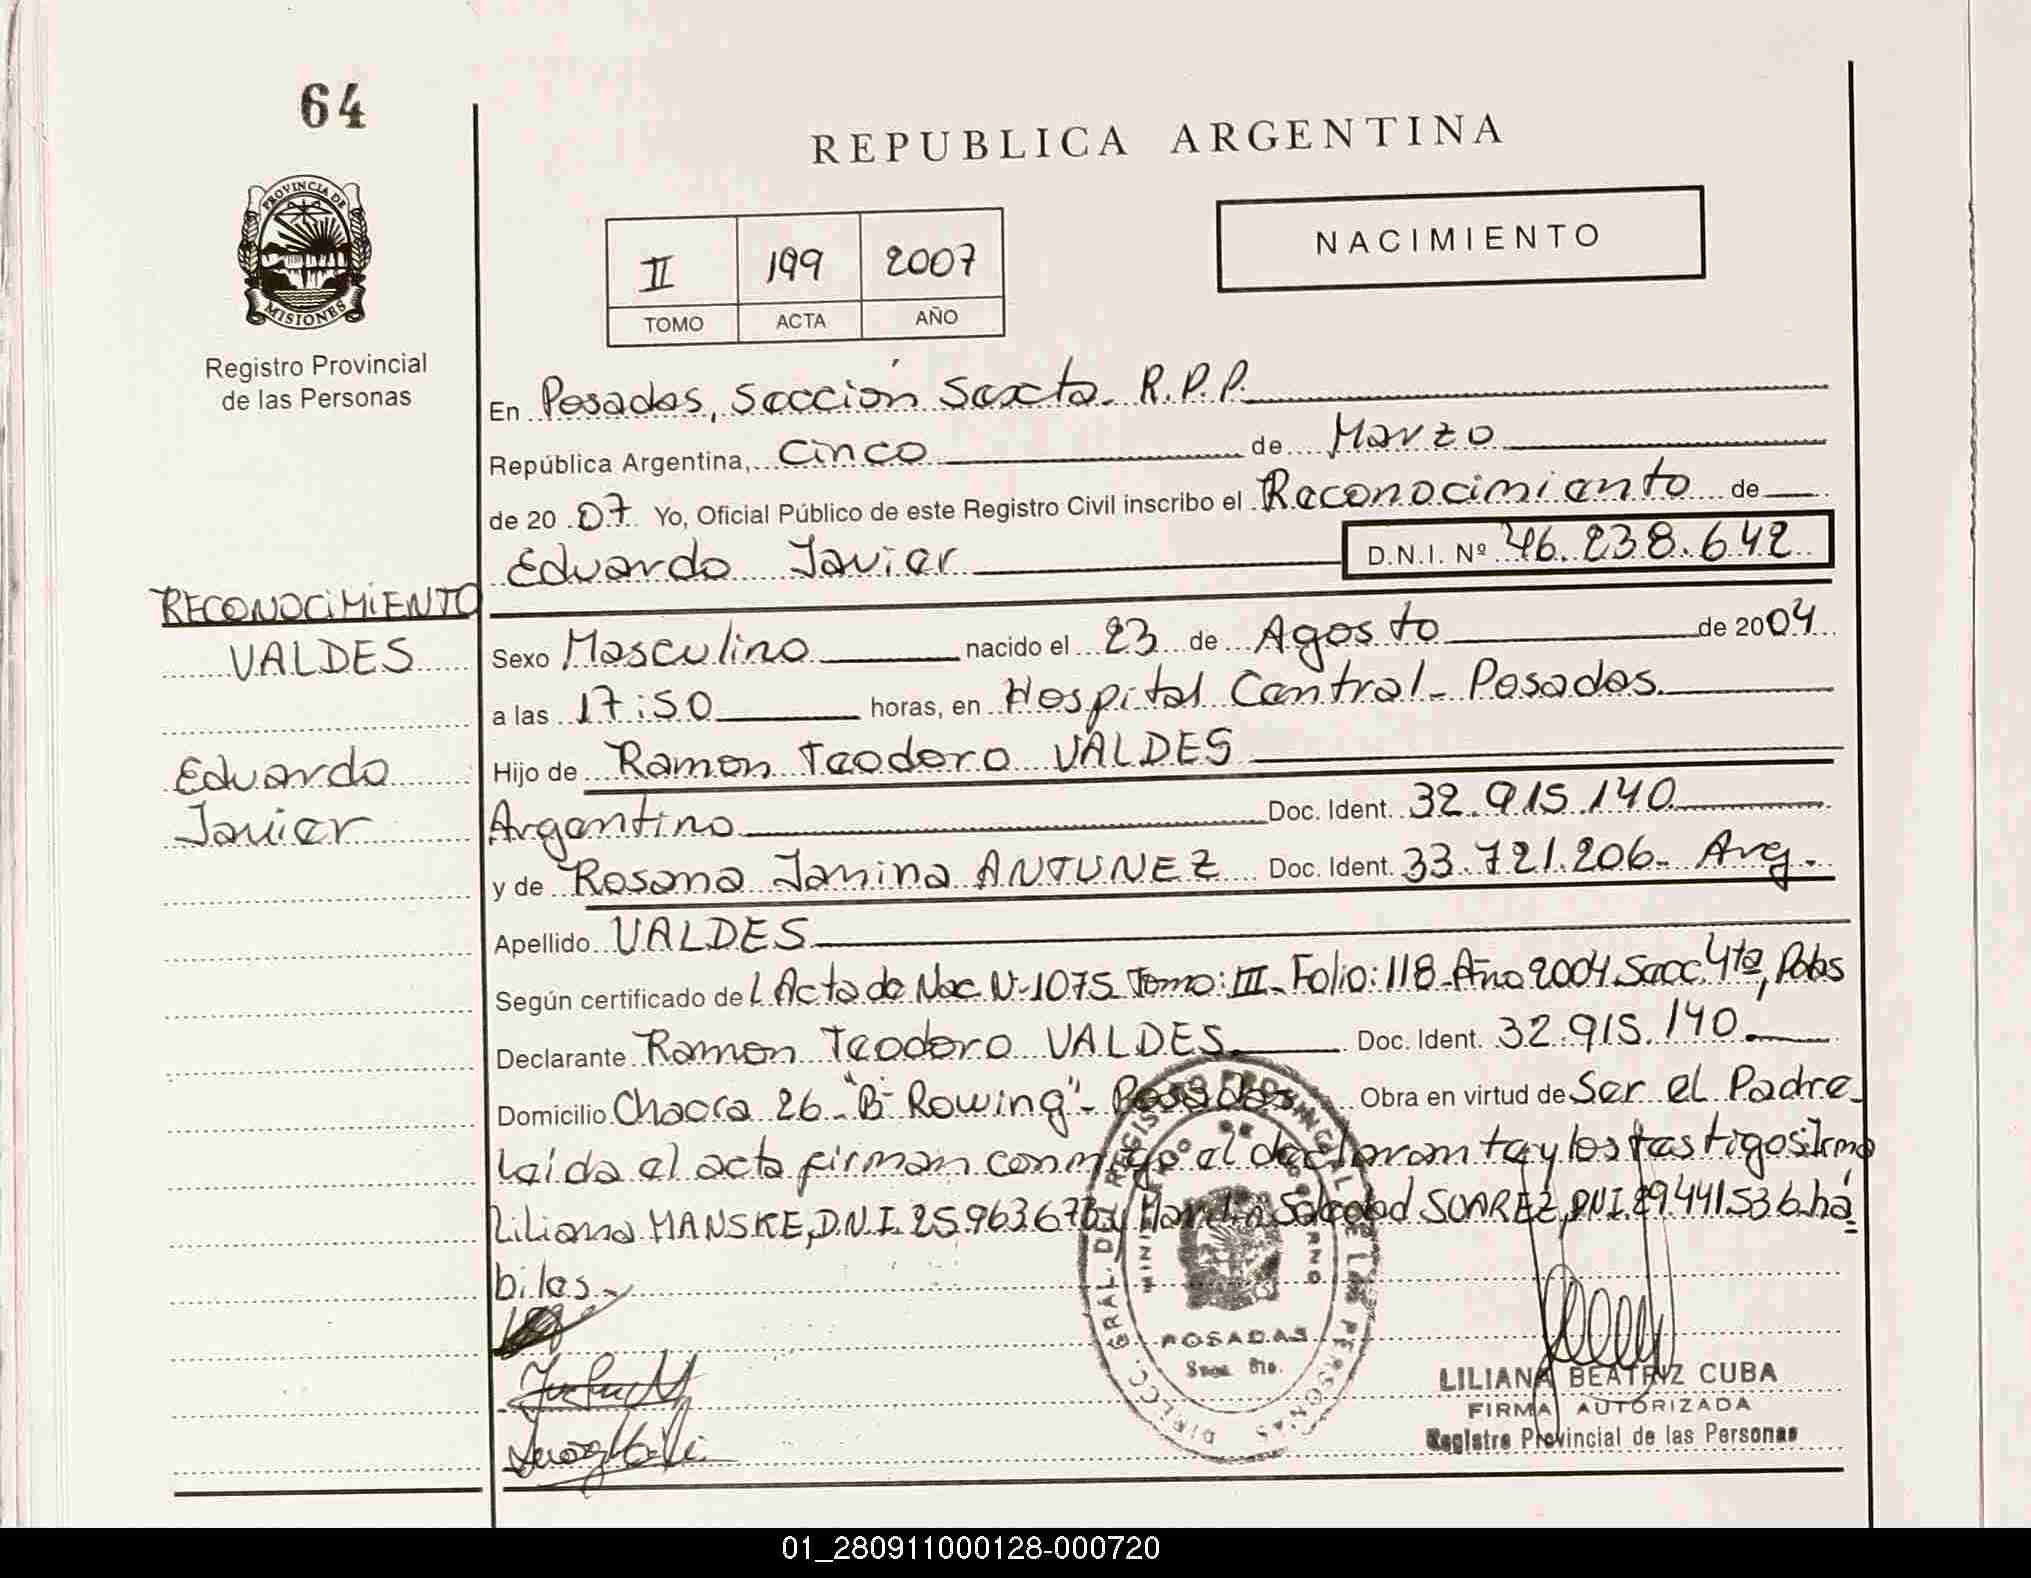 64
REPUBLICA ARGENTINA
PROVINCIA DE
MISIONES
Registro Provincial
de las Personas
NACIMIENTO
II 199 2007
TOMO ACTA AÑO
En Posadas, Sección Sexta. R.P.P.
República Argentina, Cinco de Marzo
de 2007 Yo, Oficial Público de este Registro Civil inscribo el Reconocimiento de
Eduardo Javier D.N.I. Nº 46.238.642
RECONOCIMIENTO
VALDES
Eduardo
Javier
Sexo Masculino nacido el 23 de Agosto de 2004
a las 17:50 horas, en Hospital Central - Posadas.
Hijo de Ramon Teodoro VALDES
Argentino Doc. Ident. 32.915.140
y de Rosana Janina ANTUNEZ Doc. Ident. 33.721.206- Arg.
Apellido VALDES
Según certificado del Acta de Nac. N-1075 Tomo: III- Folio: 118-Año 2004 Secc. 4ta, Pdas
Declarante Ramon Teodoro VALDES Doc. Ident. 32.915.140
Domicilio Chacra 26 - "Bº Rowing" - Posadas Obra en virtud de Ser el Padre
Leída el acta firman conmigo el declarante y los testigos: Irma
Liliana MANSKE, D.N.I. 25.963.673 y Soledad SUAREZ, DNI. 29.441.536 há
biles.
DIRECC. GRAL. DE REGISTRO PROVINCIAL DE LAS PERSONAS
MINISTERIO DE GOBIERNO
POSADAS
LILIANA BEATRIZ CUBA
FIRMA AUTORIZADA
Registro Provincial de las Personas
01_280911000128-000720